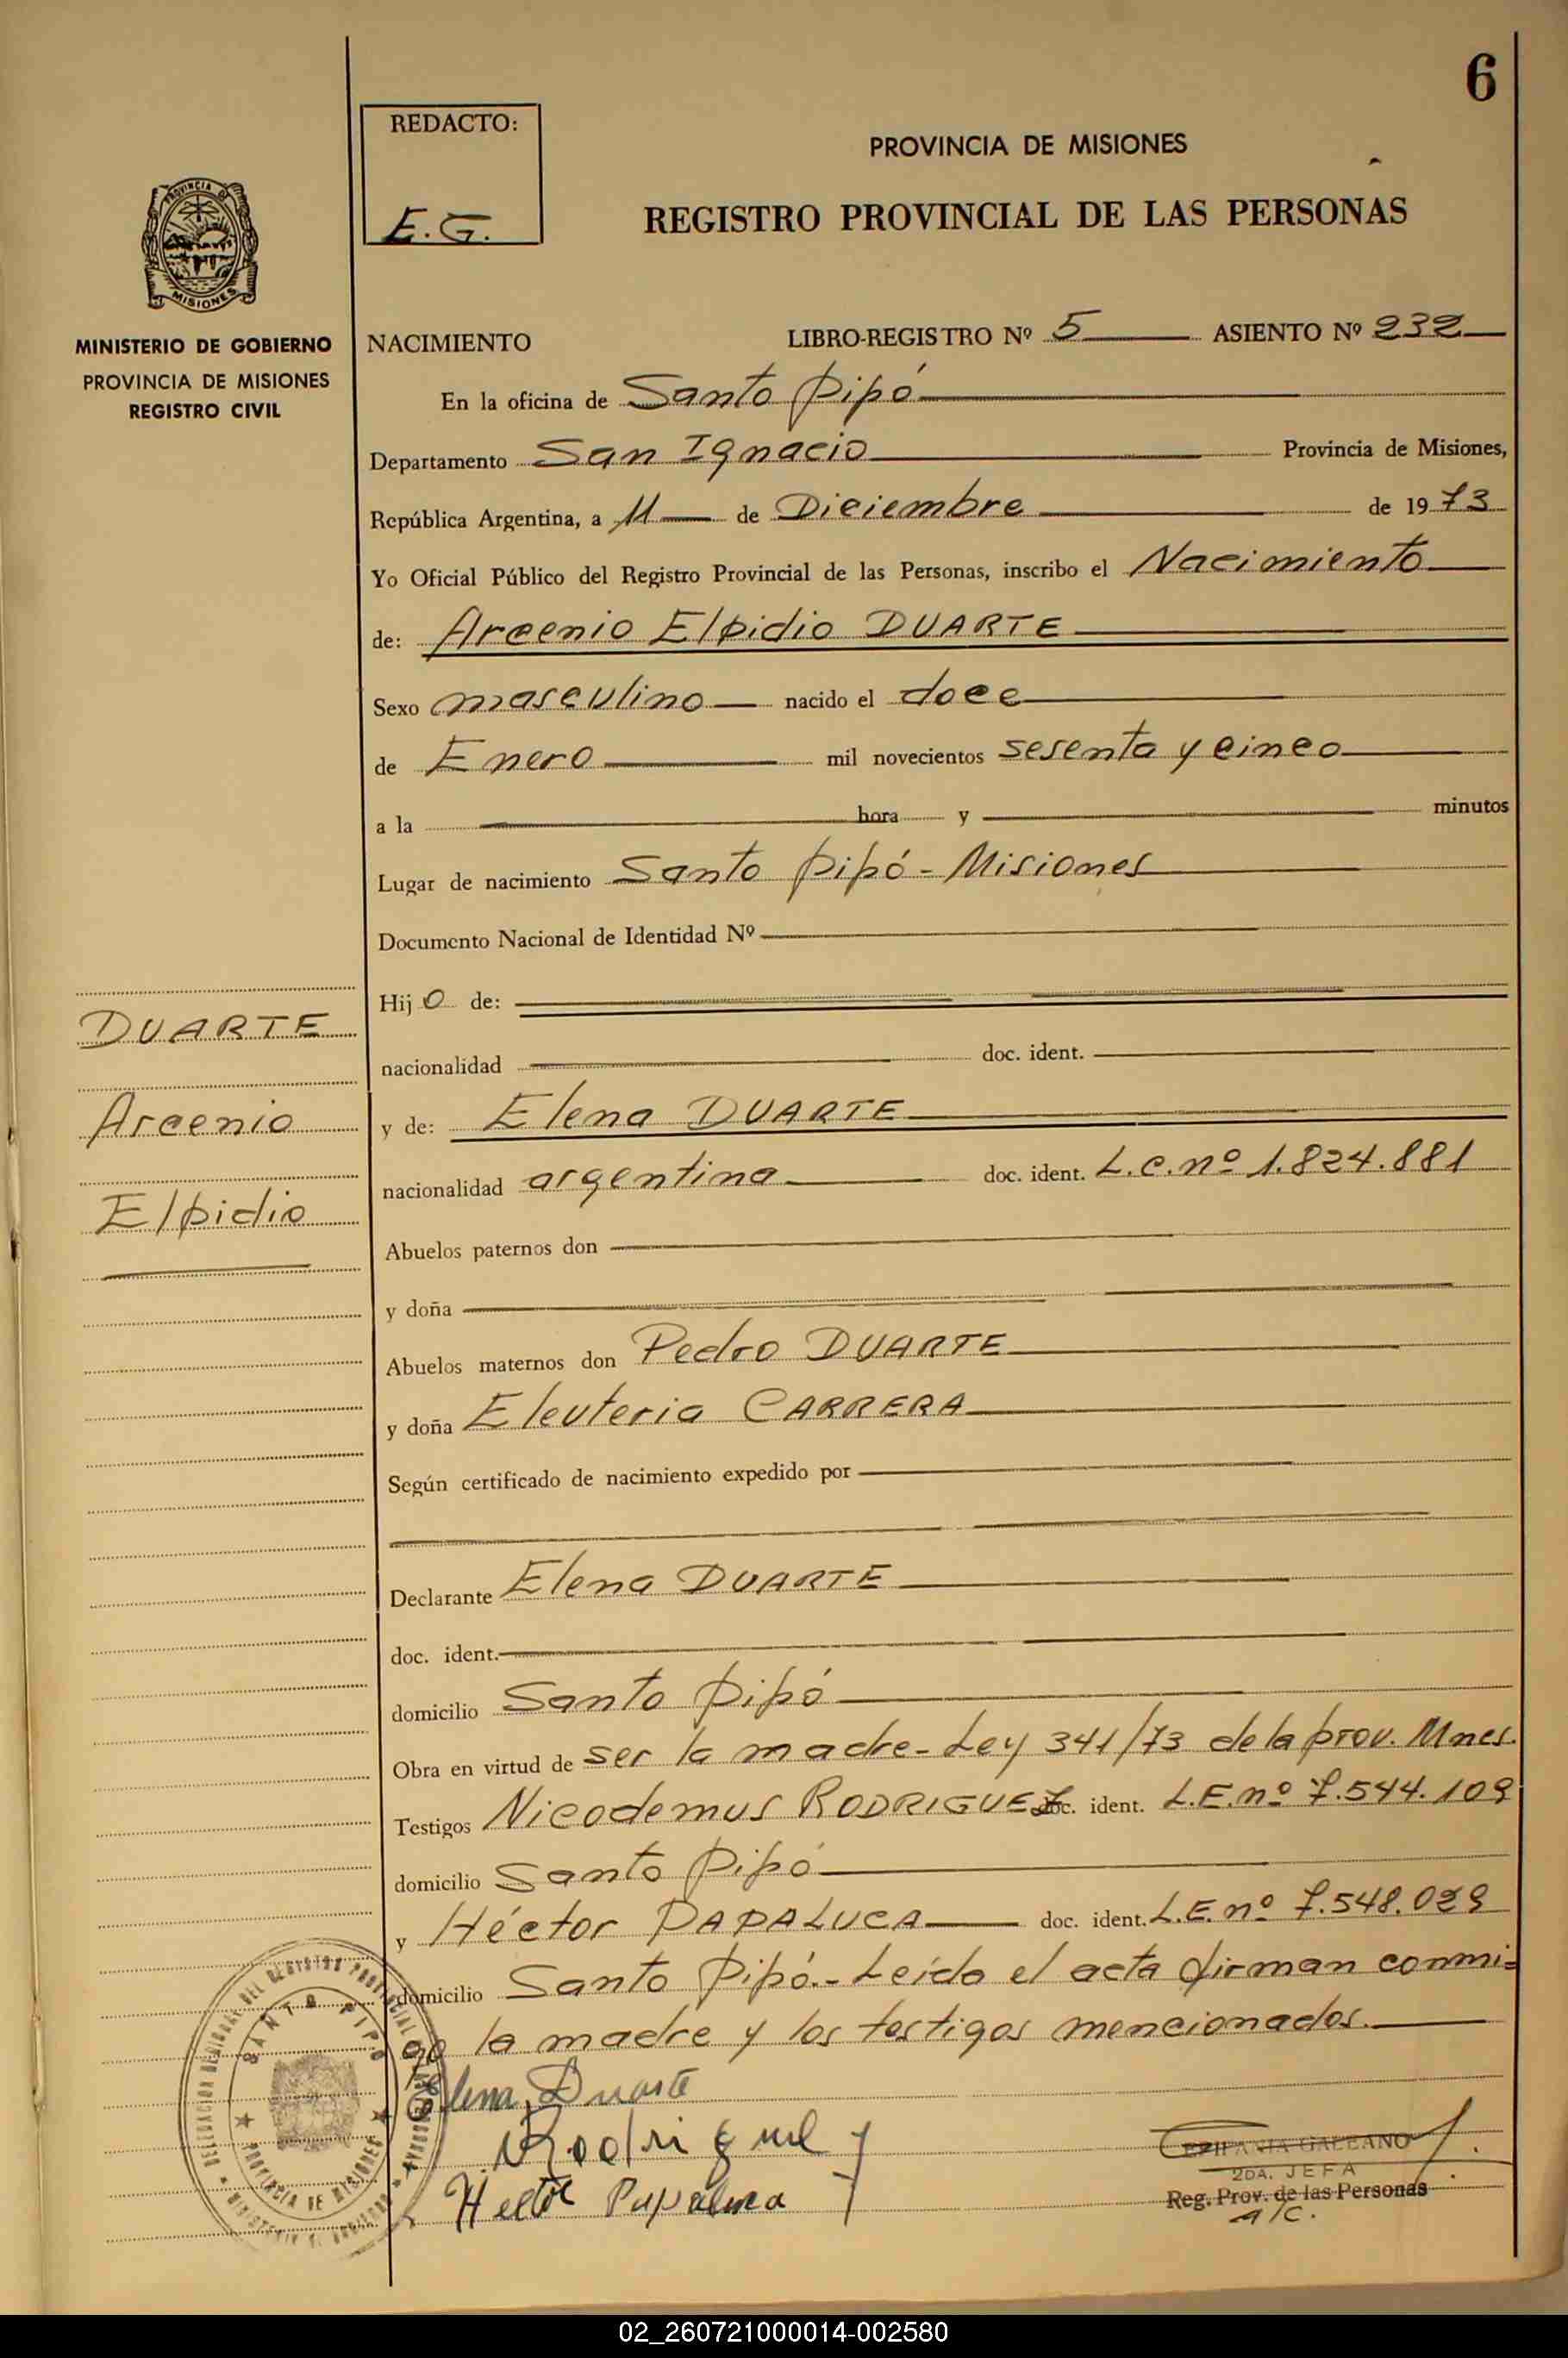 6
REDACTO:
E.G.
PROVINCIA DE MISIONES
REGISTRO PROVINCIAL DE LAS PERSONAS
PROVINCIA DE
MISIONES
MINISTERIO DE GOBIERNO
PROVINCIA DE MISIONES
REGISTRO CIVIL
NACIMIENTO LIBRO-REGISTRO Nº 5 ASIENTO Nº 232
En la oficina de Santo Pipó
Departamento San Ignacio Provincia de Misiones,
República Argentina, a 11 de Diciembre de 1973
Yo Oficial Público del Registro Provincial de las Personas, inscribo el Nacimiento
de: Arcenio Elpidio DUARTE
Sexo masculino nacido el doce
de Enero mil novecientos sesenta y cinco
a la hora y minutos
Lugar de nacimiento Santo Pipó - Misiones
Documento Nacional de Identidad Nº
Hijo de:
nacionalidad doc. ident.
DUARTE
Arcenio
Elpidio
y de: Elena DUARTE
nacionalidad argentina doc. ident. L.C. nº 1.824.881
Abuelos paternos don
y doña
Abuelos maternos don Pedro DUARTE
y doña Eleuteria CARRERA
Según certificado de nacimiento expedido por
Declarante Elena DUARTE
doc. ident.
domicilio Santo Pipó
Obra en virtud de ser la madre - Ley 341/73 de la prov. Mnes.
Testigos Nicodemus RODRIGUEZ doc. ident. L.E. nº 7.544.109
domicilio Santo Pipó
y Héctor PAPALUCA doc. ident. L.E. nº 7.548.029
domicilio Santo Pipó.- Leída el acta firman conmi=
go la madre y los testigos mencionados.
Elena Duarte
Hector Papaluca
SANTO PIPO
PROVINCIA DE MISIONES
EPIFANIA GALEANO
2DA. JEFA
Reg. Prov. de las Personas
a/c.
02_260721000014-002580